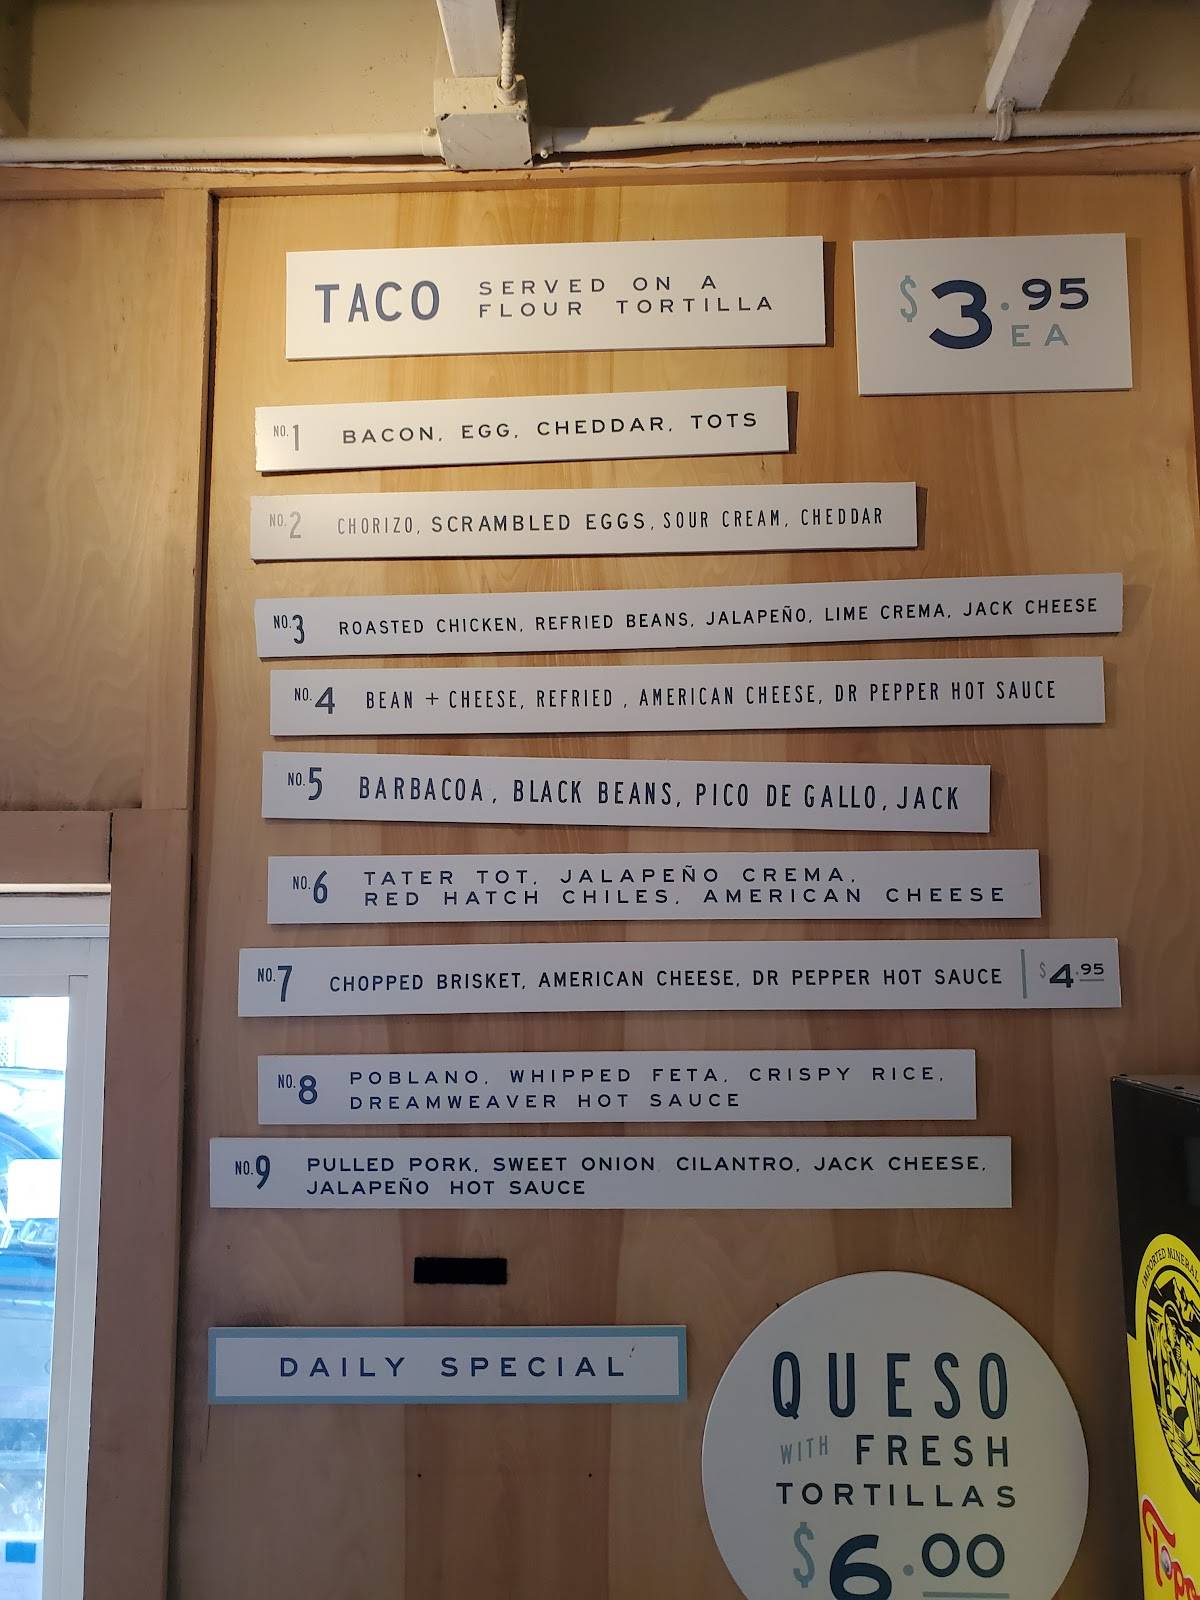 TACO SERVED ON A
FLOUR TORTILLA
$3.95
EA
NO.1 BACON, EGG, CHEDDAR, TOTS
NO.2 CHORIZO, SCRAMBLED EGGS, SOUR CREAM, CHEDDAR
NO.3 ROASTED CHICKEN, REFRIED BEANS, JALAPEÑO, LIME CREMA, JACK CHEESE
NO.4 BEAN + CHEESE, REFRIED , AMERICAN CHEESE, DR PEPPER HOT SAUCE
NO.5 BARBACOA, BLACK BEANS, PICO DE GALLO, JACK
NO.6 TATER TOT, JALAPEÑO CREMA,
RED HATCH CHILES, AMERICAN CHEESE
NO.7 CHOPPED BRISKET, AMERICAN CHEESE, DR PEPPER HOT SAUCE | $4.95
NO.8 POBLANO, WHIPPED FETA, CRISPY RICE,
DREAMWEAVER HOT SAUCE
NO.9 PULLED PORK, SWEET ONION CILANTRO, JACK CHEESE,
JALAPEÑO HOT SAUCE
DAILY SPECIAL
QUESO
WITH FRESH
TORTILLAS
$6.00
IMPORTED MINERAL